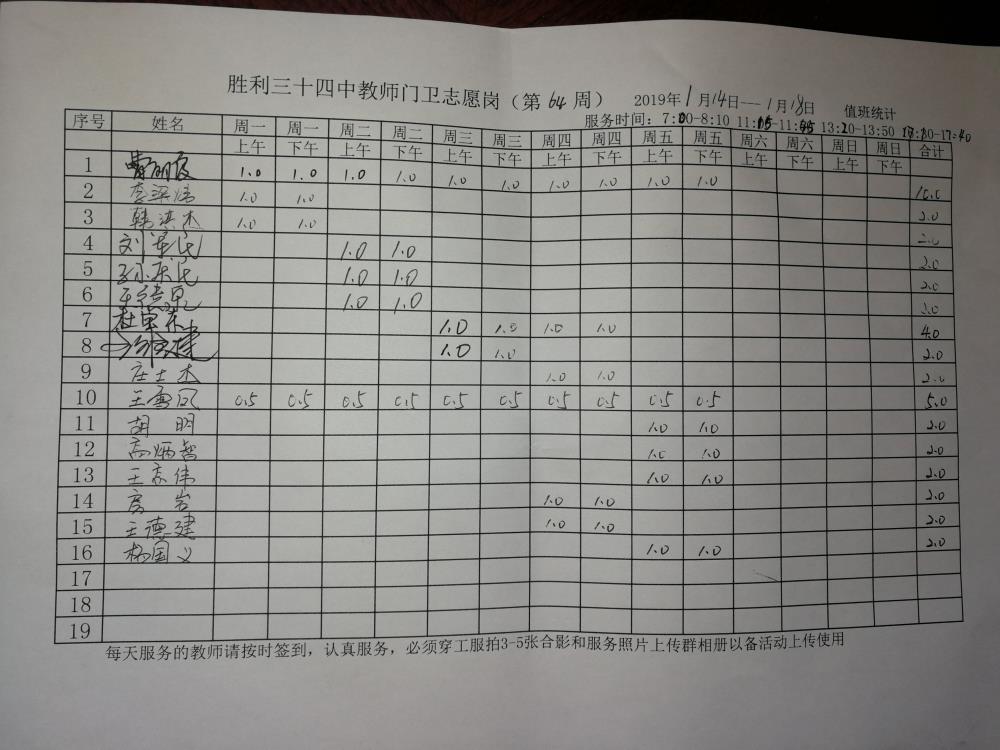 胜利三十四中教师门卫志愿岗（第 64 周） 2019年 1 月 14日---1月 18日 值班统计
服务时间：7:00-8:10 11:15-11:45 13:20-13:50 -17:40
序号 姓名 周一上午 周一下午 周二上午 周二下午 周三上午 周三下午 周四上午 周四下午 周五上午 周五下午 周六上午 周六下午 周日上午 周日下午 合计
1 1.0 1.0 1.0 1.0 1.0 1.0 1.0 1.0 1.0 1.0 10.0
2 1.0 1.0 2.0
3 韩洪杰 1.0 1.0 2.0
4 1.0 1.0 2.0
5 1.0 1.0 2.0
6 1.0 1.0 2.0
7 1.0 1.0 1.0 1.0 4.0
8 1.0 1.0 2.0
9 庄士杰 1.0 1.0 2.0
10 王雪风 0.5 0.5 0.5 0.5 0.5 0.5 0.5 0.5 0.5 0.5 5.0
11 胡 明 1.0 1.0 2.0
12 高炳智 1.0 1.0 2.0
13 王京伟 1.0 1.0 2.0
14 房 岩 1.0 1.0 2.0
15 王德建 1.0 1.0 2.0
16 杨国义 1.0 1.0 2.0
17
18
19
每天服务的教师请按时签到，认真服务，必须穿工服拍3-5张合影和服务照片上传群相册以备活动上传使用